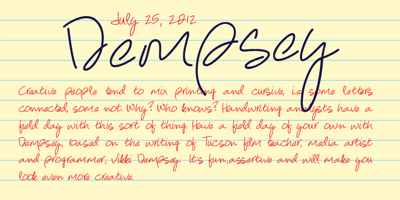 July 25, 2012
Dempsey
Creative people tend to mix printing and cursive, i.e. some letters
connected, some not. Why? Who knows? Handwriting analysts have a
field day with this sort of thing. Have a field day of your own with
Dempsey, based on the writing of Tucson film teacher, media artist
and programmer, Vikki Dempsey. It's fun, assertive and will make you
look even more creative.